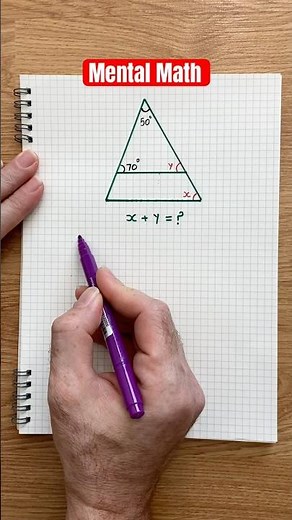 Mental Math
50°
70° y
x
x + y = ?